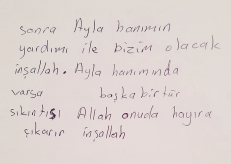 sonra Ayla hanımın
yardımı ile bizim olacak
inşallah. Ayla hanımında
varsa başka bir tür
sıkıntısı Allah onuda hayıra
çıkarır inşallah